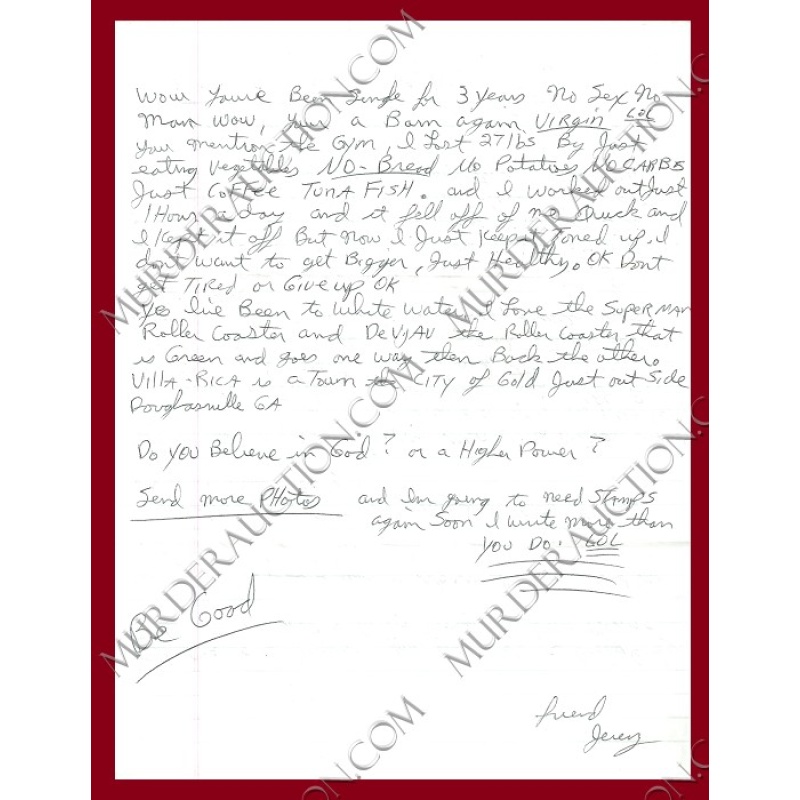 Wow You're Been Single for 3 years No Sex No
Man Wow, Your a Born again Virgin LOL
You mention the Gym, I Lost 27 lbs By Just
eating Vegetables NO-Bread No Potatoes NO CARBS
Just Coffee TUNA FISH. and I worked out Just
1 Hour a day and it fell off of me Quick and
I Kept it off But now I Just Keep it Toned up, I
don't want to get Bigger, Just Healthy. OK Dont
get TIRED or Give up OK
Yes I've Been to White Water, I Love the SUPERMAN
Roller Coaster and DEVJAU the Roller coaster that
is Green and goes one way then Back the other.
VILLA-RICA is a Town the CITY of GOLD Just out Side
Douglasville GA
Do YOU Believe in God? or a Higher Power?
Send more PHotos and Im going to need STAMPS
again Soon I write more than
YOU DO. LOL
Be Good
friend
Jerry
MURDERAUCTION.COM
MURDERAUCTION.COM
MURDERAUCTION.COM
MURDERAUCTION.COM